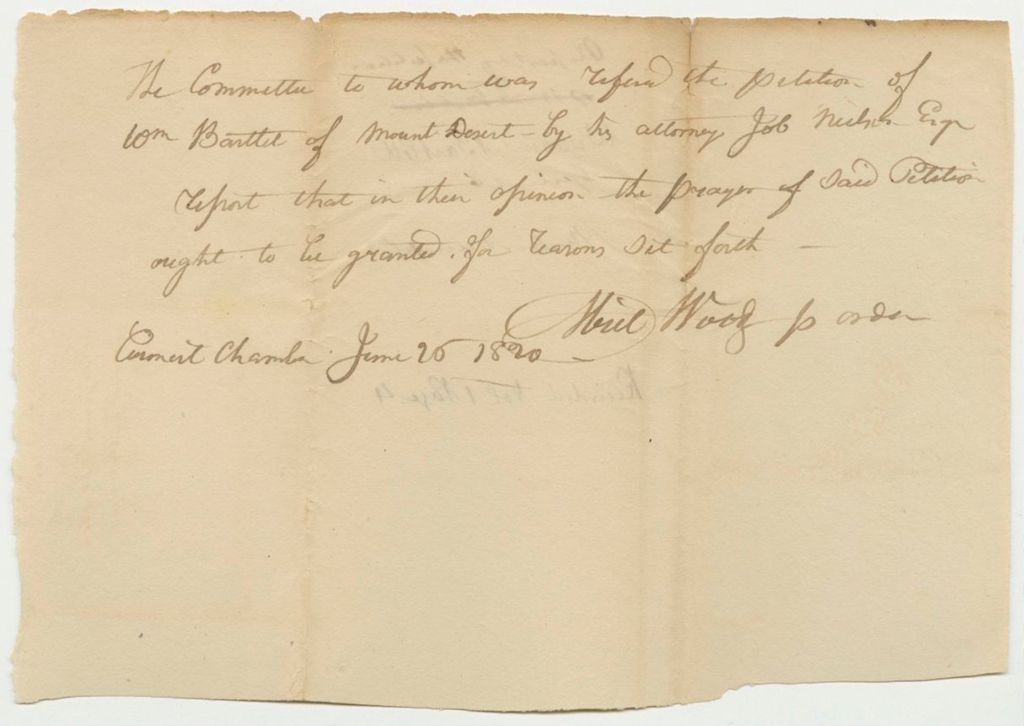 The Committee to whom was referd the petition of
Wm Bartlet of Mount Desert - by his attorney Job Nelson Esqr
report that in their opinion the prayer of said Petition
ought to be granted. for reasons set forth —
Abiel Wood pr order
Council Chamber June 26 1820 —